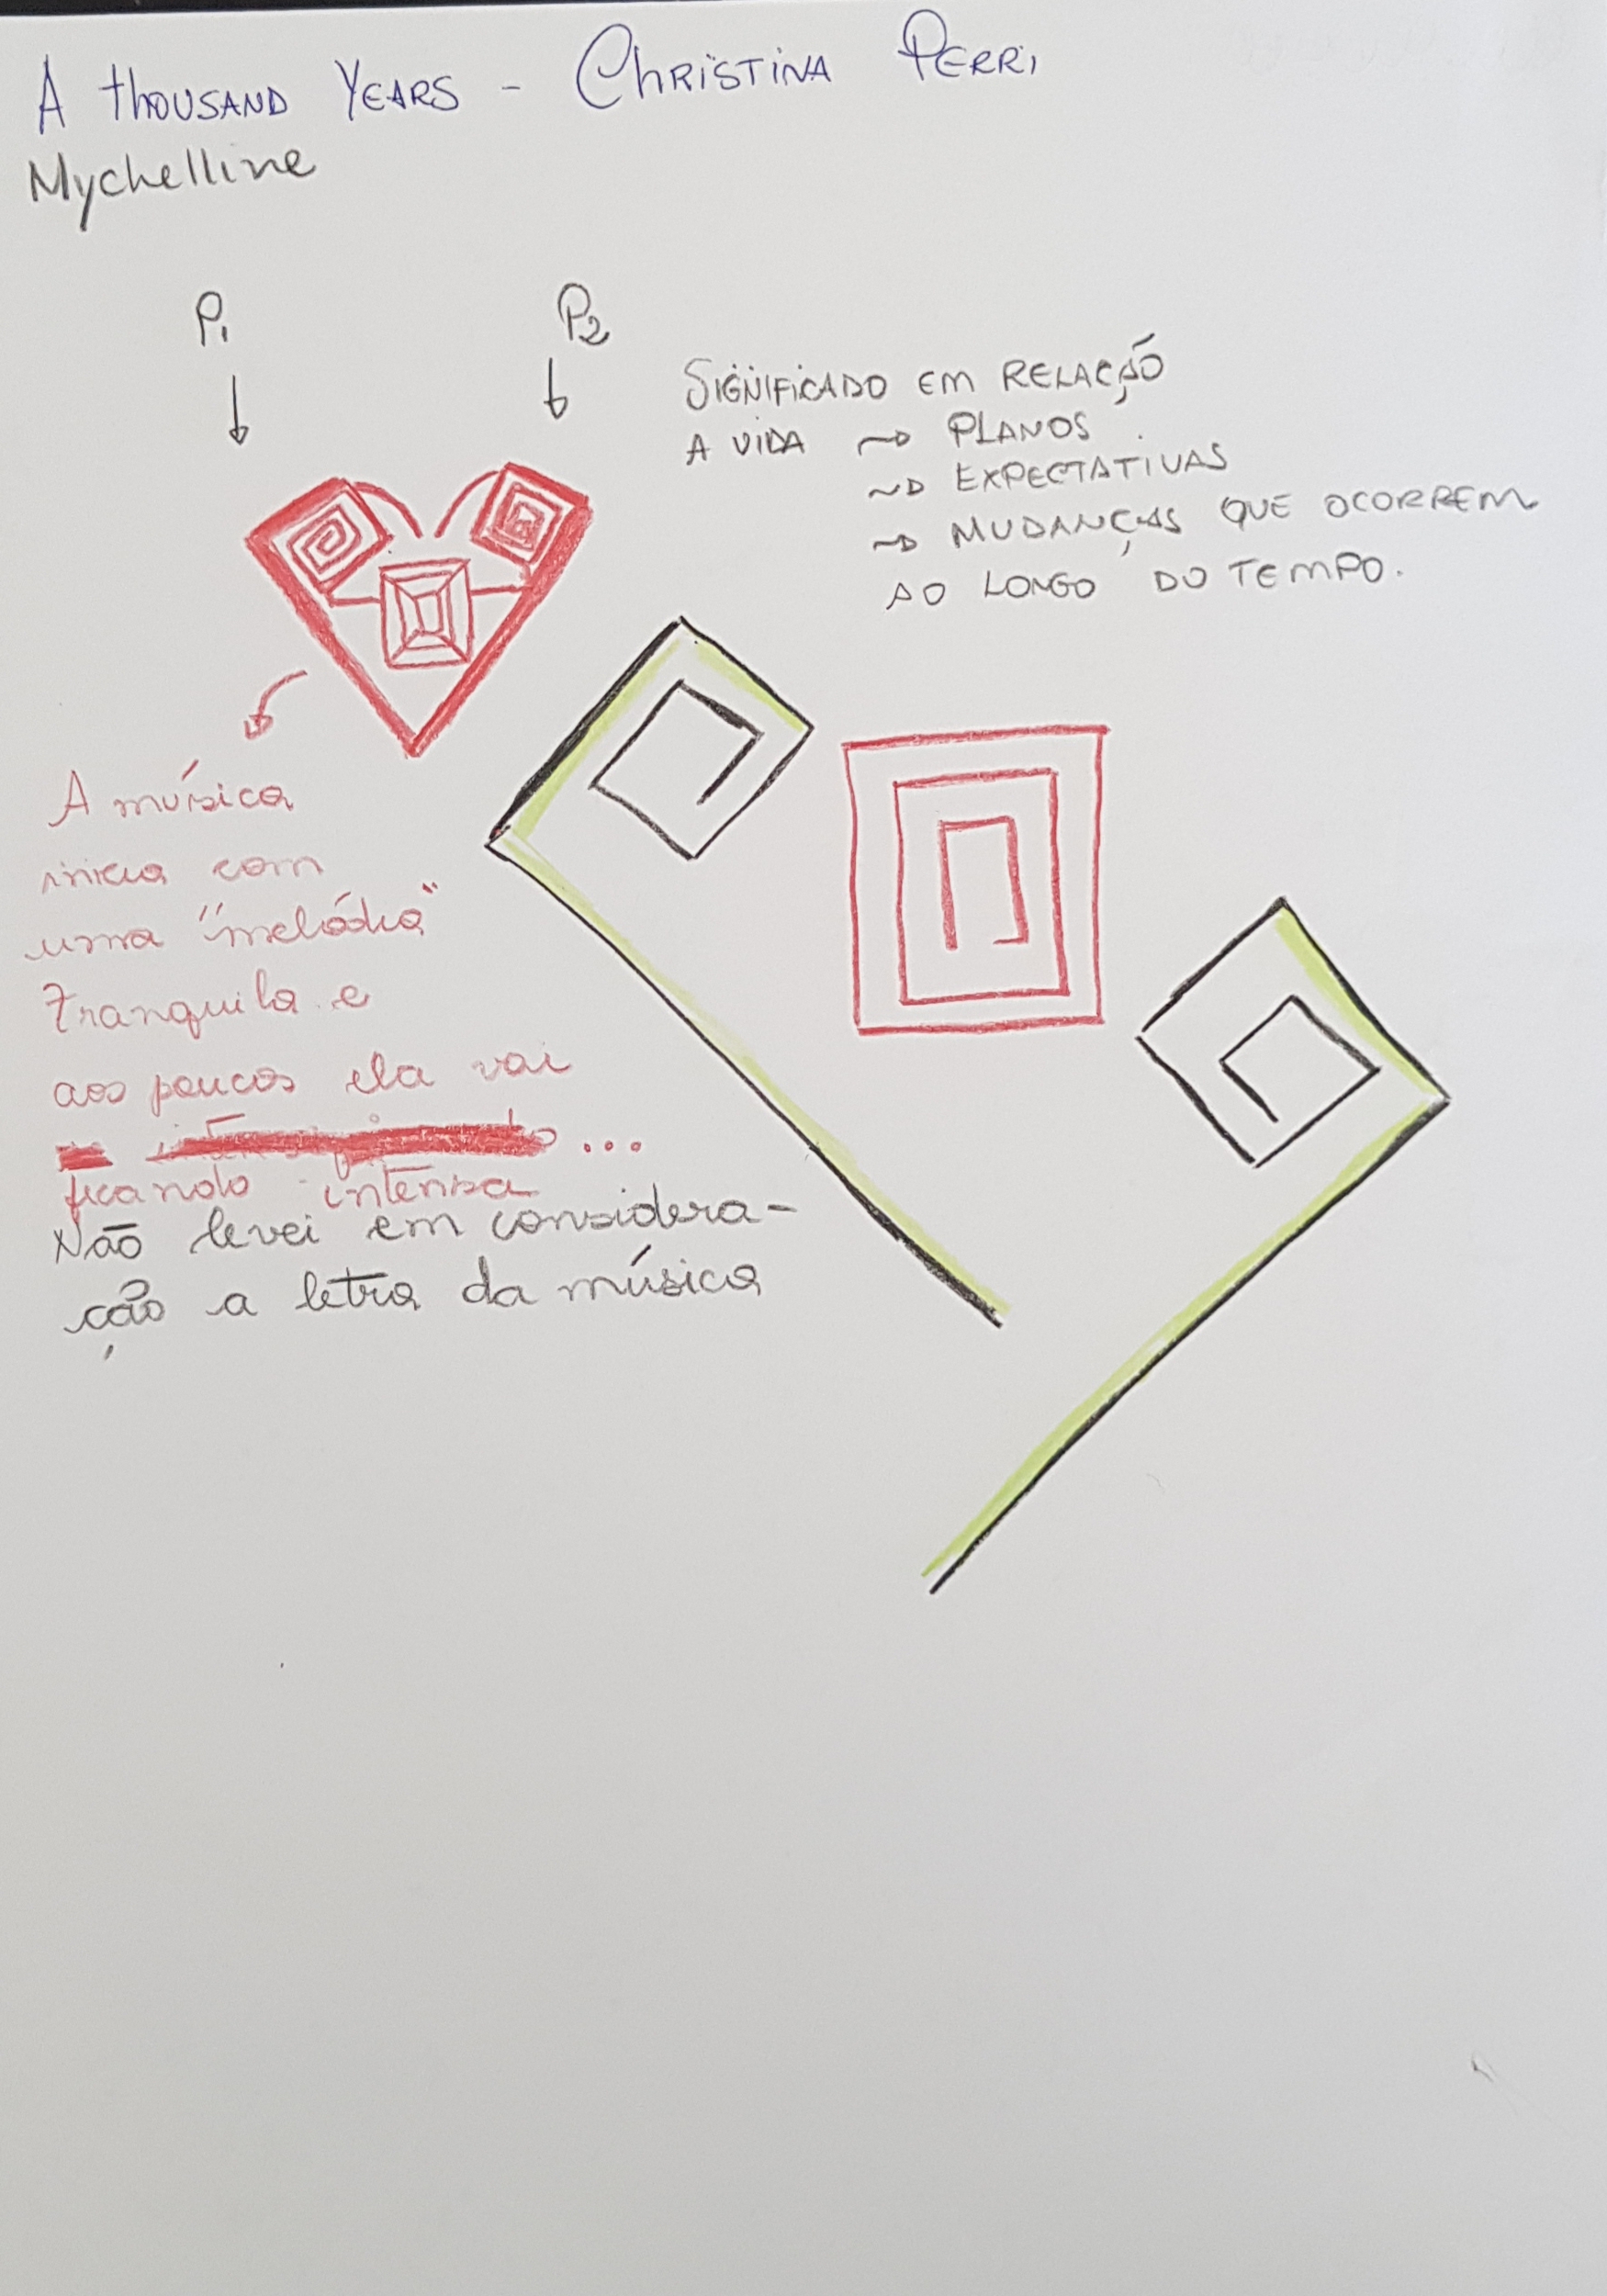 A thousand Years - Christina Perri
Mychelline
P1
P2
SIGNIFICADO EM RELAÇÃO
A VIDA ~> PLANOS
~> EXPECTATIVAS
~> MUDANÇAS QUE OCORREM
AO LONGO DO TEMPO.
A música
inicia com
uma "melódia"
tranquila e
aos poucos ela vai
...
ficando intensa
Não levei em considera-
ção a letra da música